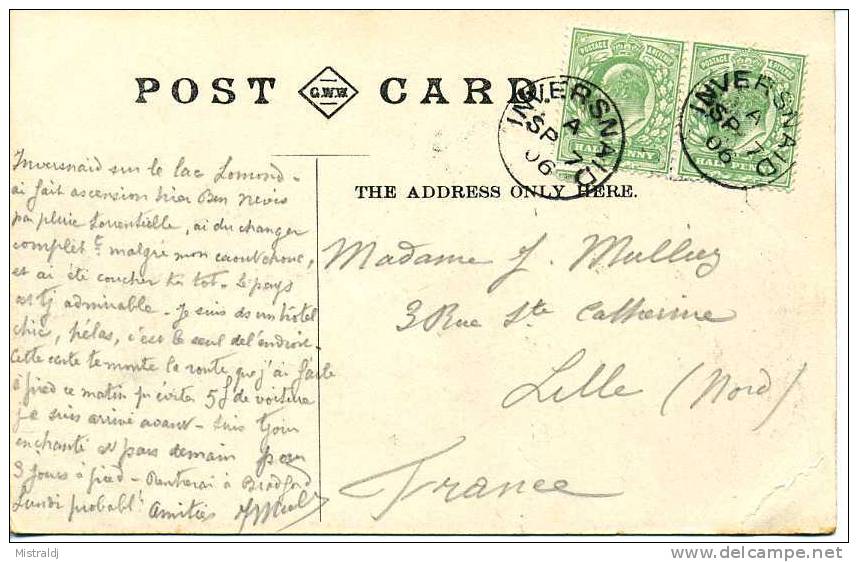 POST CARD
G.W.W.
POSTAGE & REVENUE
HALFPENNY
POSTAGE & REVENUE
HALFPENNY
INVERSNAID
A
SP 7
06
INVERSNAID
A
SP 7
06
THE ADDRESS ONLY HERE.
Inversnaid sur le lac Lomond -
ai fait ascension hier Ben Nevis
par pluie torrentielle, ai du changer
complètt malgré mon caoutchouc,
et ai été coucher tot - Le pays
est tj admirable - Je suis ds un hotel
chic, hélas, c'est le seul de l'endroit -
Cette carte te montre la route que j'ai faite
à pied ce matin pr éviter 5f de voiture
je suis arrivé avant - suis tjours
enchanté et pars demain pour
3 jours à pied - Rentrerai à Bradford
Lundi probablt Amitiés
Madame J. Mulliez
3 Rue Ste Catherine
Lille (Nord)
France
Mistraldj
www.delcampe.net